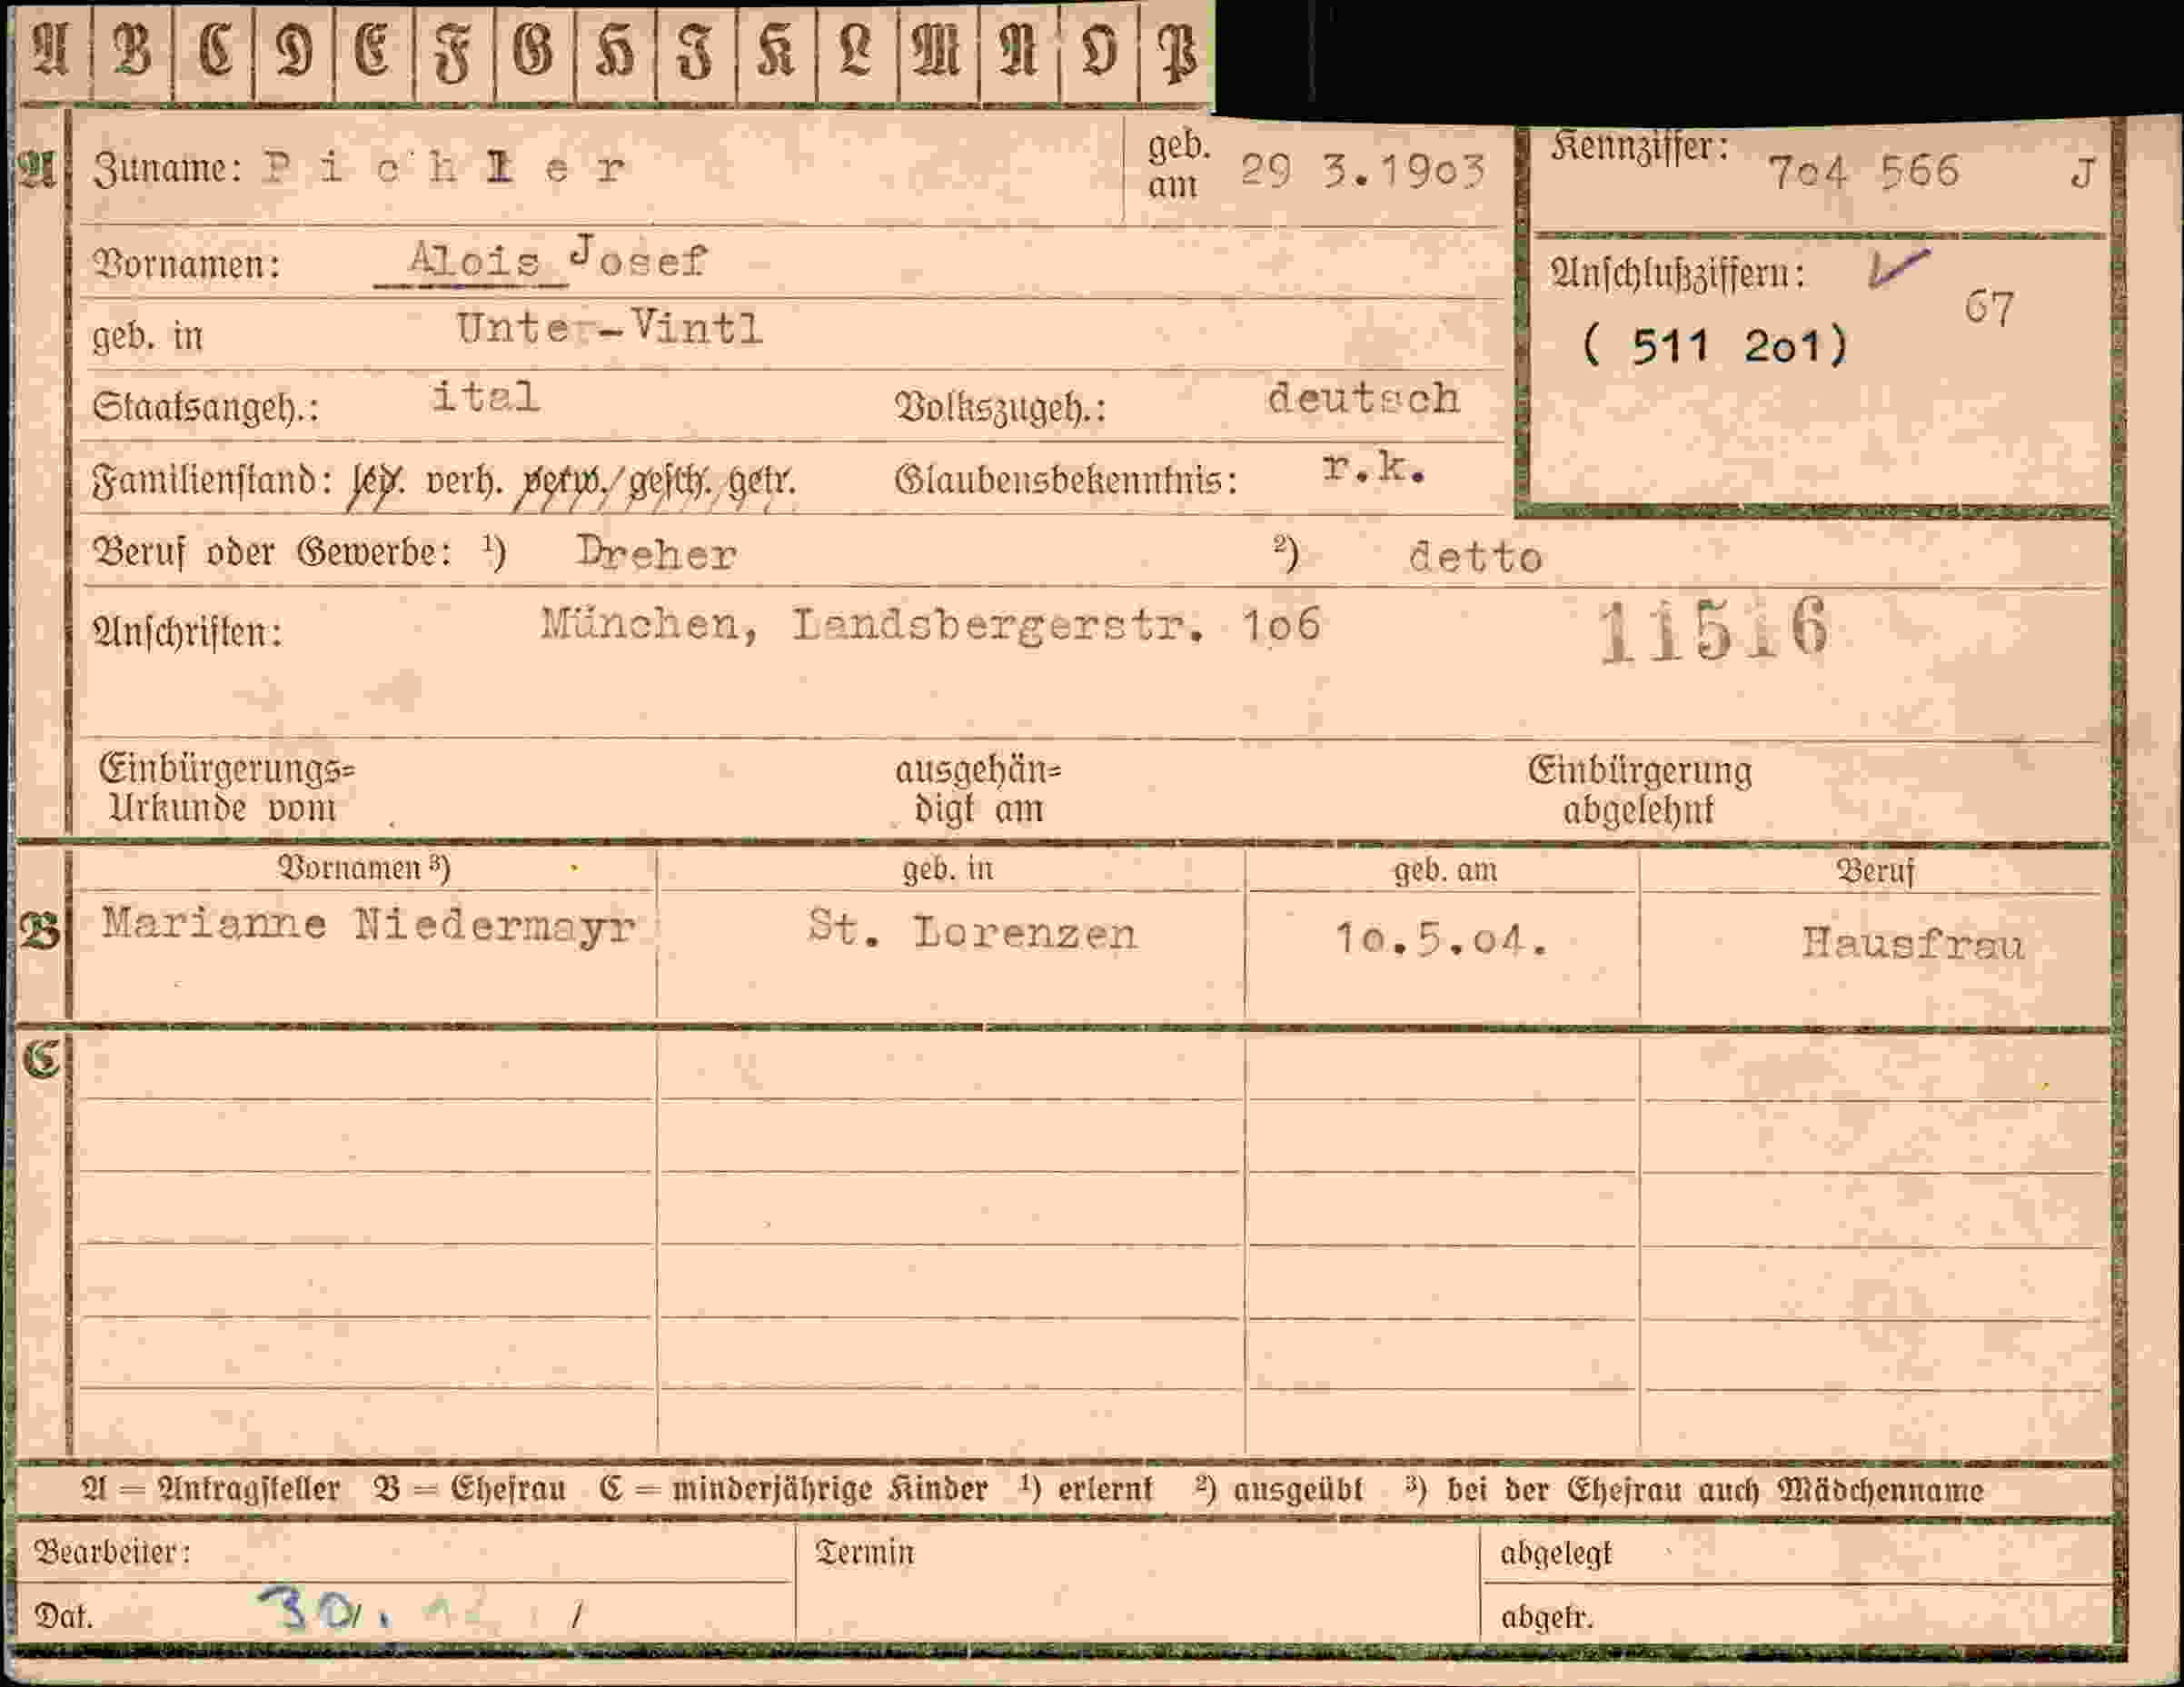 A B C D E F G H J K L M N O P
A Zuname: Pichler geb. am 29 3.1903 Kennziffer: 704 566 J
Vornamen: Alois Josef Anschlußziffern: 67
geb. in Unter-Vintl ( 511 201)
Staatsangeh.: ital Volkszugeh.: deutsch
Familienstand: led. verh. verw. gesch. getr. Glaubensbekenntnis: r.k.
Beruf oder Gewerbe: ¹) Dreher ²) detto
Anschriften: München, Landsbergerstr. 106 11516
Einbürgerungs= ausgehän= Einbürgerung
Urkunde vom digt am abgelehnt
Vornamen ³) geb. in geb. am Beruf
B Marianne Niedermayr St. Lorenzen 10.5.04. Hausfrau
C
A = Antragsteller B = Ehefrau C = minderjährige Kinder ¹) erlernt ²) ausgeübt ³) bei der Ehefrau auch Mädchenname
Bearbeiter: Termin abgelegt
Dat. 30. abgetr.